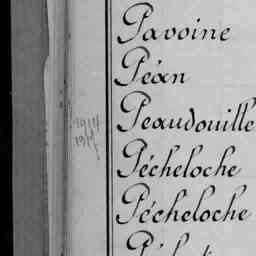 Pavoine
Péan
Peaudouille
Pécheloche
Pécheloche